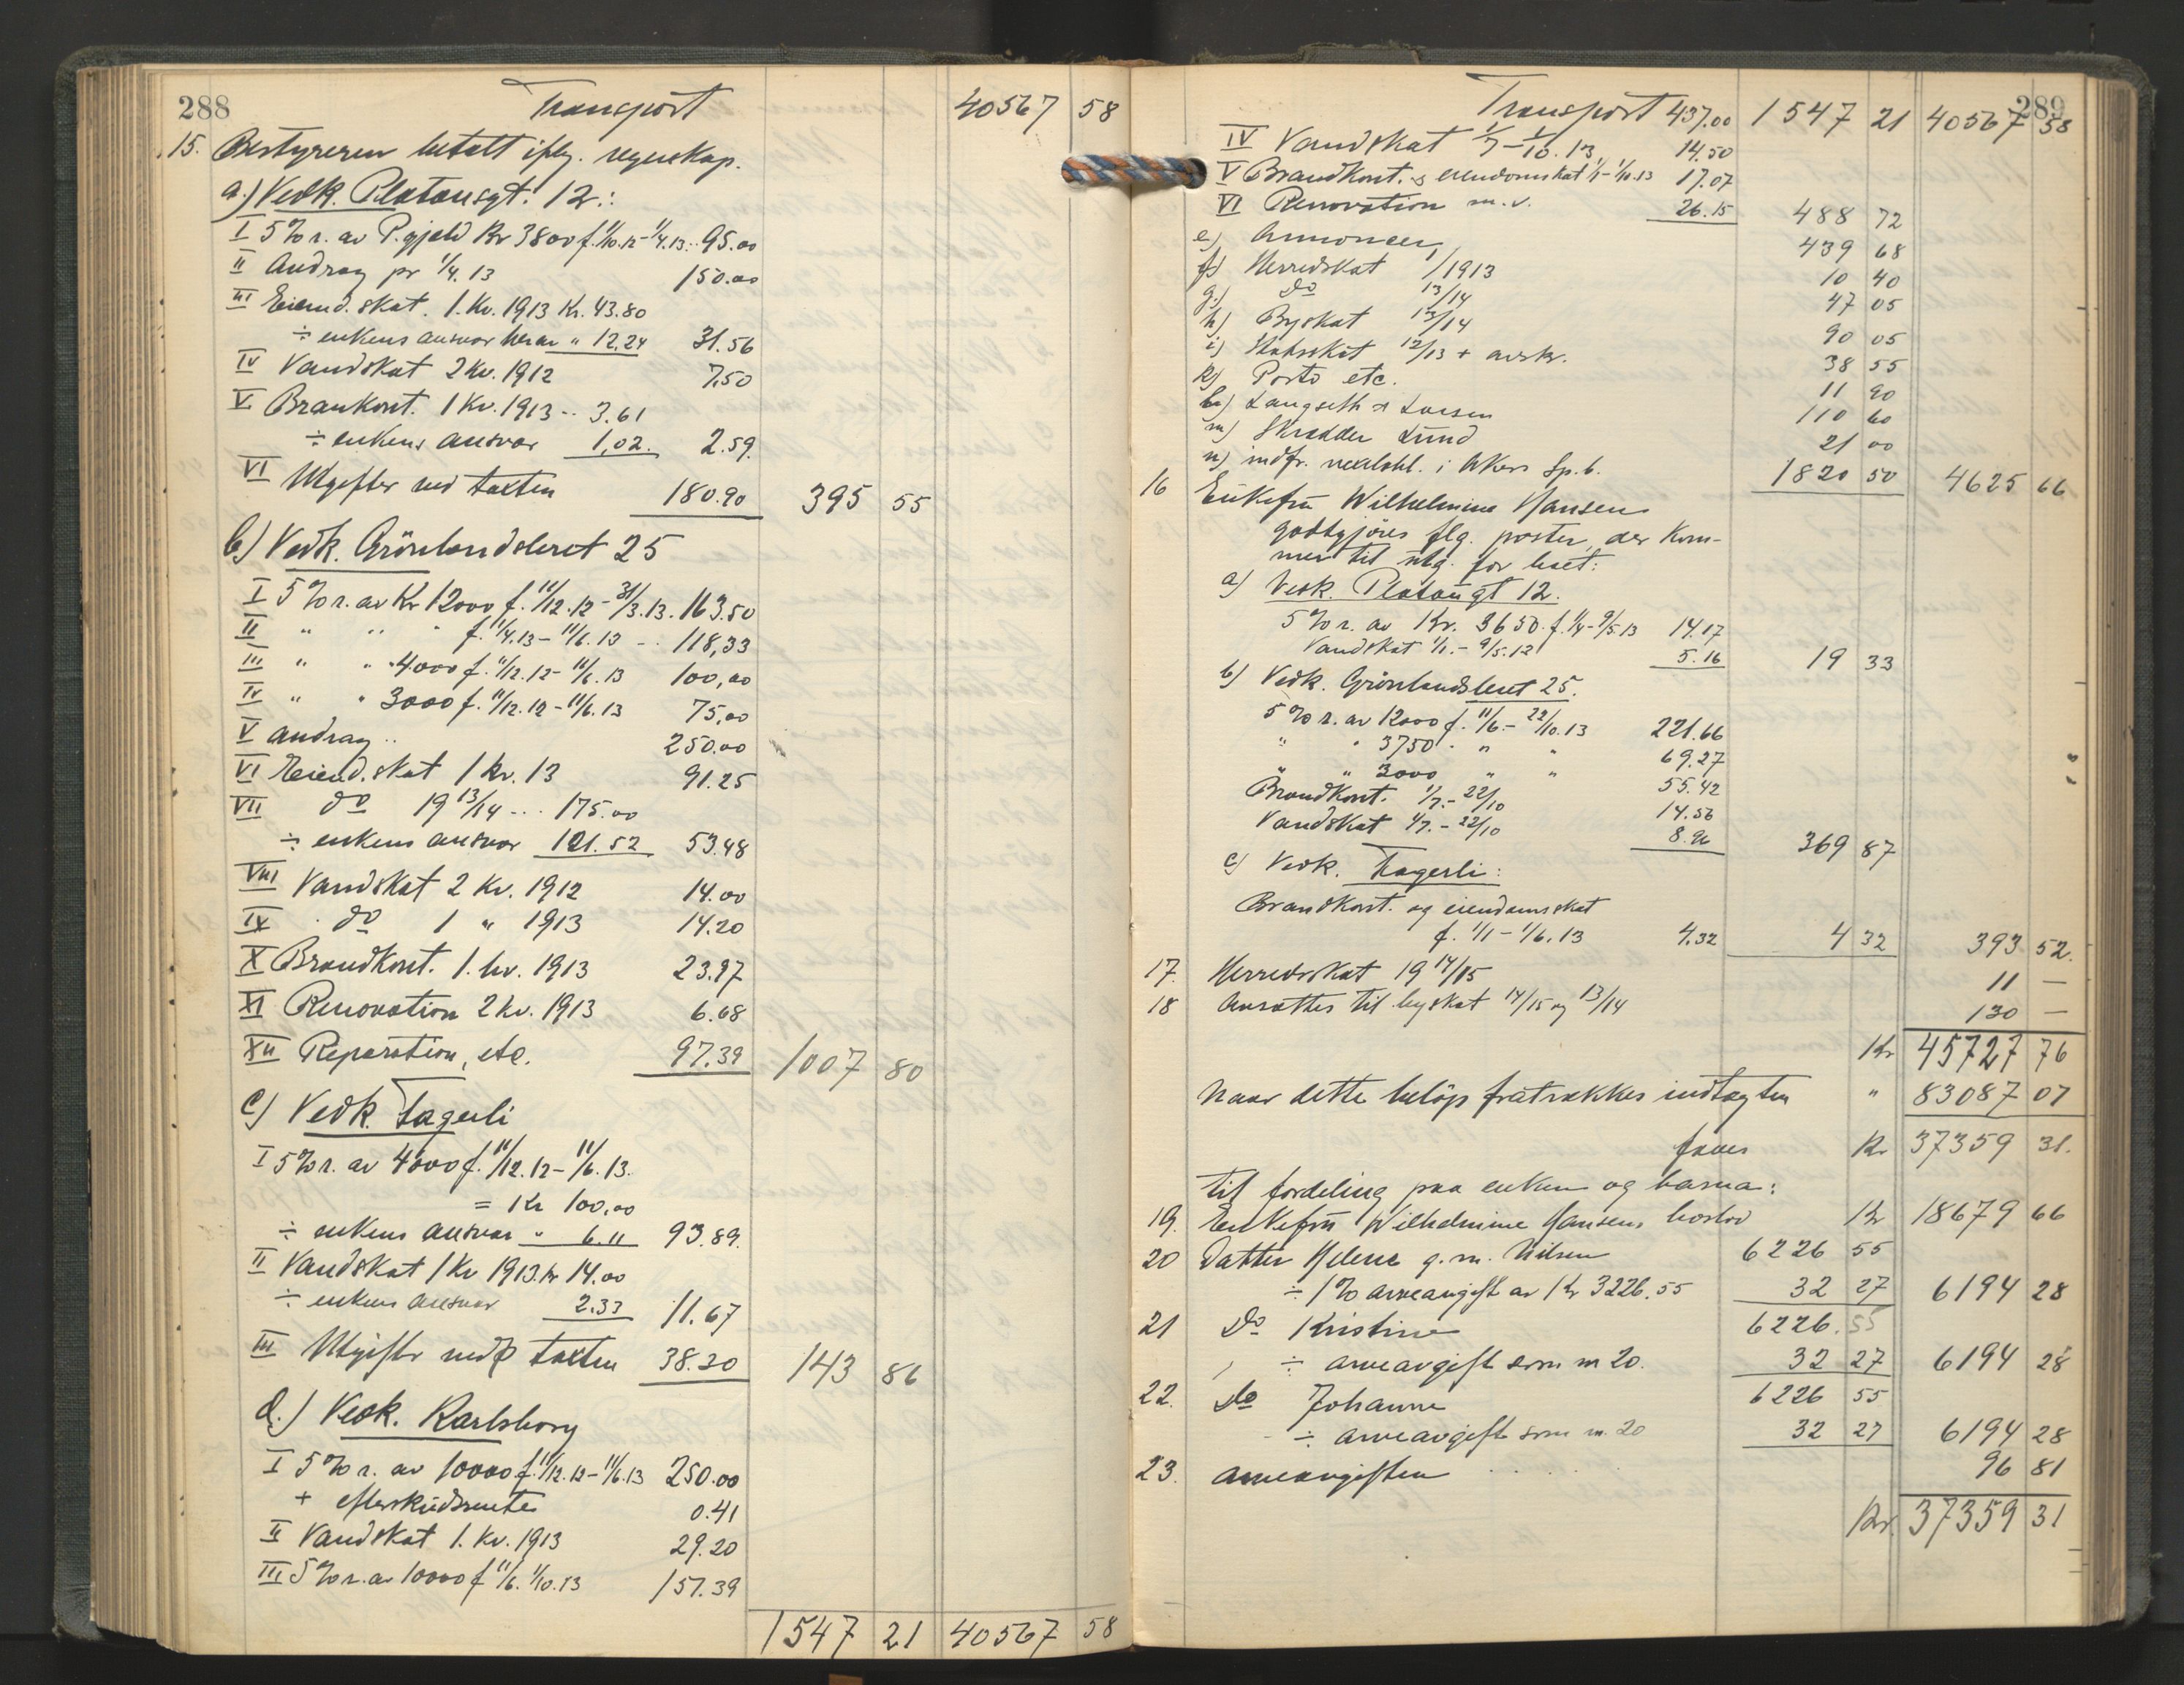 288 Transport 40567 58
15. Bestyreren betalt iflg. regnskap.
a.) Vedk. Platousgt. 12.:
I 5 % r. av P.gjeld Kr 3800 f. 1/10.12 - 1/4.13 .. 95.00
II Avdrag pr 1/4. 13 150.00
III Eiend. skat. 1. Kv. 1913 Kr. 43.80
÷ enkens ansvar herav " 12.24 31.56
IV Vandskat 2 Kv. 1912 7.50
V. Brankont. 1 Kv. 1913 .. 3.61
÷ enkens ansvar 1,02. 2.59.
VI Utgifter ved taxten 180.90 395 55
b.) Vedk. Grönlandsleret 25
I 5 % r. av Kr 12000 f. 11/12.12 - 31/3.13. 163.50
II " " " f. 1/4.13 - 11/6.13 .. 118,33
III " " 4000 f. 11/12.12 - 11/6.13 100,00
IV " " 3000 f. 11/12.12 - 11/6.13 75,00
V avdrag .. 250.00
VI Eiend. skat 1 kv. 13 91.25
VII do 19 13/14 ... 175.00
÷ enkens ansvar 121.52 53.48
VIII Vandskat 2 Kv. 1912 14.00
IX do 1 " 1913 14.20
X Brandkont. 1. kv. 1913 23.97
XI Renovation 2 kv. 1913 6.68
XII Reparation, etc. 97.39 1007 80
c) Vedk. Fagerli
I 5 % r. av 4000 f. 11/12.12 - 11/6.13.
= Kr 100,00
÷ enkens ansvar " 6.11 93.89.
II Vandskat 1 Kv 1913. kr 14.00
÷ enkens ansvar 2.33 11.67
III Utgifter ved taxten 38.30 143 86
d.) Vedk. Karlsborg
I 5 % r. av 10000 f. 11/12.12 - 11/6.13 250.00
+ efterskudsrente 0.41
II Vandskat 1. kv. 1913 29.20
III 5 % r. av 10000 f 11/6. 1/10.13 157.39
1547 21 40567 58
289
Transport 437.00 1547 21 40567 58
IV Vandskat 1/7 - 1/10. 13 14.50
V Brandkont. & eiendomskat 1/1 - 1/10.13 17.07
VI Renovation m. v. 26.15 488 72
e) Annoncer, 439 68
f) Herredskat /1913 10 40
g.) do 13/14 47 05
h) Byskat 13/14 90 05
i) Statsskat 12/13 + avskr. 38 55
k) Porto etc. 11 90
l) Langseth & Larsen 110 60
m) Skrædder Lund 21 00
n) indfr. vexelobl. i Akers Sp.b. 1820 50 4625 66
16 Enkefru Wilhelmine Hansen
godtgjöres flg. poster, der kom-
mer til utg. for boet:
a) Vedk. Platougt 12.
5 % r. av Kr. 3650. f. 1/4 - 9/5.13 14.17
Vandskat 1/1. - 9/5.12 5.16 19 33
b) Vedk. Grönlandsleret 25.
5 % r. av 12000 f. 11/6. - 22/10.13 221.66
" " 3750 . " " 69.27
" " 3000 " " 55.42
Brandkont. 1/7. - 22/10 14.56
Vandskat 1/7. - 22/10 8.96 369 87
c) Vedk. Fagerli:
Brandkont. og eiendomsskat
f. 1/1 - 1/6.13 4.32 4 32 393 52.
17. Herredsskat 19 14/15 11 —
18 Avsættes til byskat 14/15 og 13/14 130 —
Kr 45727 76
Naar dette belöp fratrækkes indtægten " 83087 07
faaes Kr 37359 31.
til fordeling paa enken og barna:
19. Enkefru Wilhelmine Hansens boslod Kr 18679 66
20 Datter Helene g. m. Nilsen 6226 55
÷ 1 % arveavgift av Kr 3226.55 32 27 6194 28
21 do Kristine 6226. 55
÷ arveavgift som m 20. 32 27 6194 28
22. do Johanne 6226 55
÷ arveavgift som m 20 32 27 6194 28
23. arveavgiften 96 81
Kr. 37359 31